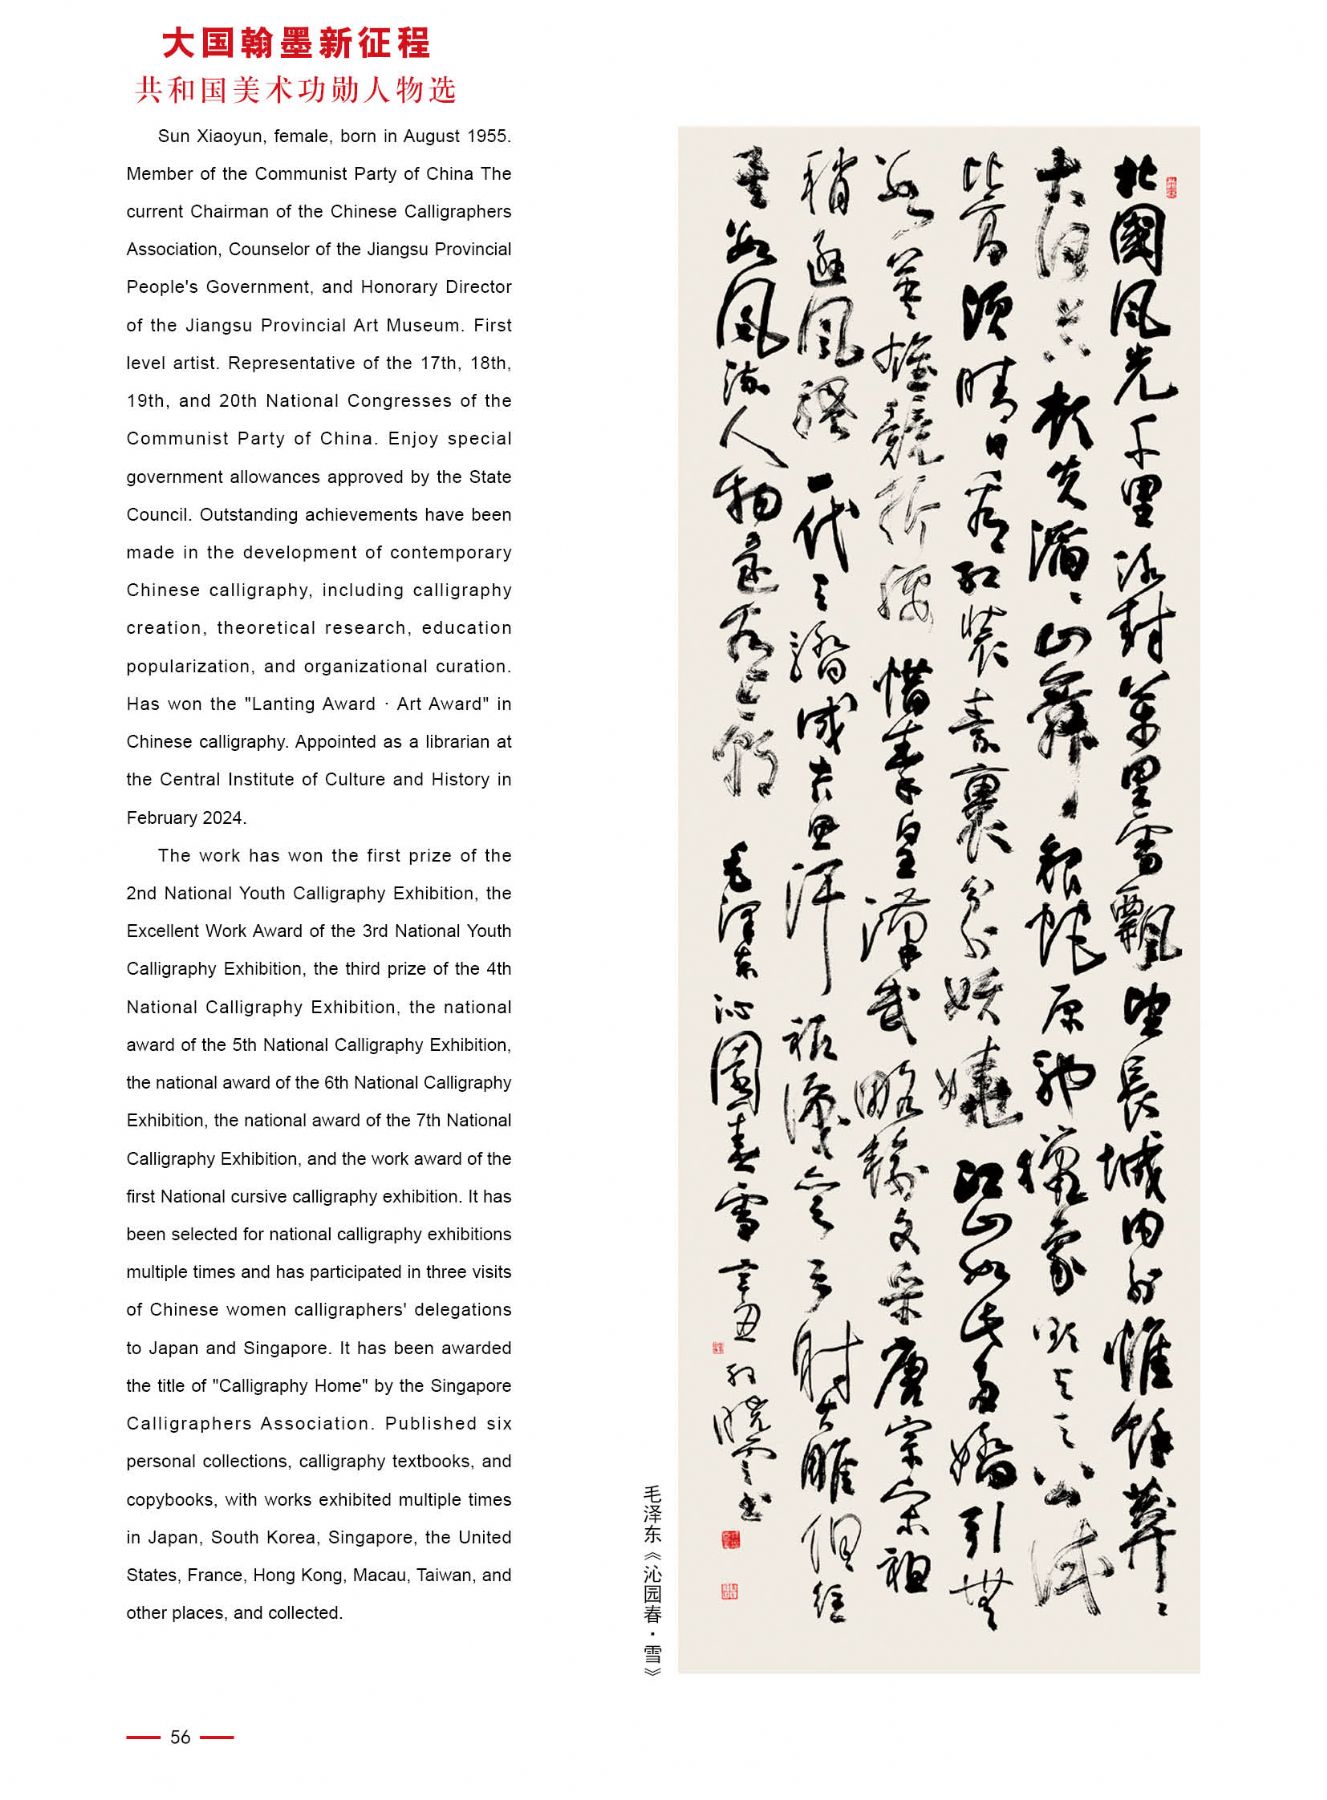 大国翰墨新征程
共和国美术功勋人物选
Sun Xiaoyun, female, born in August 1955.
Member of the Communist Party of China The
current Chairman of the Chinese Calligraphers
Association, Counselor of the Jiangsu Provincial
People's Government, and Honorary Director
of the Jiangsu Provincial Art Museum. First
level artist. Representative of the 17th, 18th,
19th, and 20th National Congresses of the
Communist Party of China. Enjoy special
government allowances approved by the State
Council. Outstanding achievements have been
made in the development of contemporary
Chinese calligraphy, including calligraphy
creation, theoretical research, education
popularization, and organizational curation.
Has won the "Lanting Award · Art Award" in
Chinese calligraphy. Appointed as a librarian at
the Central Institute of Culture and History in
February 2024.
The work has won the first prize of the
2nd National Youth Calligraphy Exhibition, the
Excellent Work Award of the 3rd National Youth
Calligraphy Exhibition, the third prize of the 4th
National Calligraphy Exhibition, the national
award of the 5th National Calligraphy Exhibition,
the national award of the 6th National Calligraphy
Exhibition, the national award of the 7th National
Calligraphy Exhibition, and the work award of the
first National cursive calligraphy exhibition. It has
been selected for national calligraphy exhibitions
multiple times and has participated in three visits
of Chinese women calligraphers' delegations
to Japan and Singapore. It has been awarded
the title of "Calligraphy Home" by the Singapore
Calligraphers Association. Published six
personal collections, calligraphy textbooks, and
copybooks, with works exhibited multiple times
in Japan, South Korea, Singapore, the United
States, France, Hong Kong, Macau, Taiwan, and
other places, and collected.
北國風光千里冰封萬里雪飄望長城內外惟餘莽〻
大河上下頓失滔〻山舞銀蛇原馳蠟象欲與天公試
比高須晴日看紅裝素裹分外妖嬈江山如此多嬌引無
數英雄競折腰惜秦皇漢武略輸文采唐宗宋祖
稍遜風騷一代天驕成吉思汗祇識彎弓射大雕俱往
矣數風流人物還看今朝 毛澤東沁園春雪 辛丑 孫曉雲書
毛泽东《沁园春·雪》
56